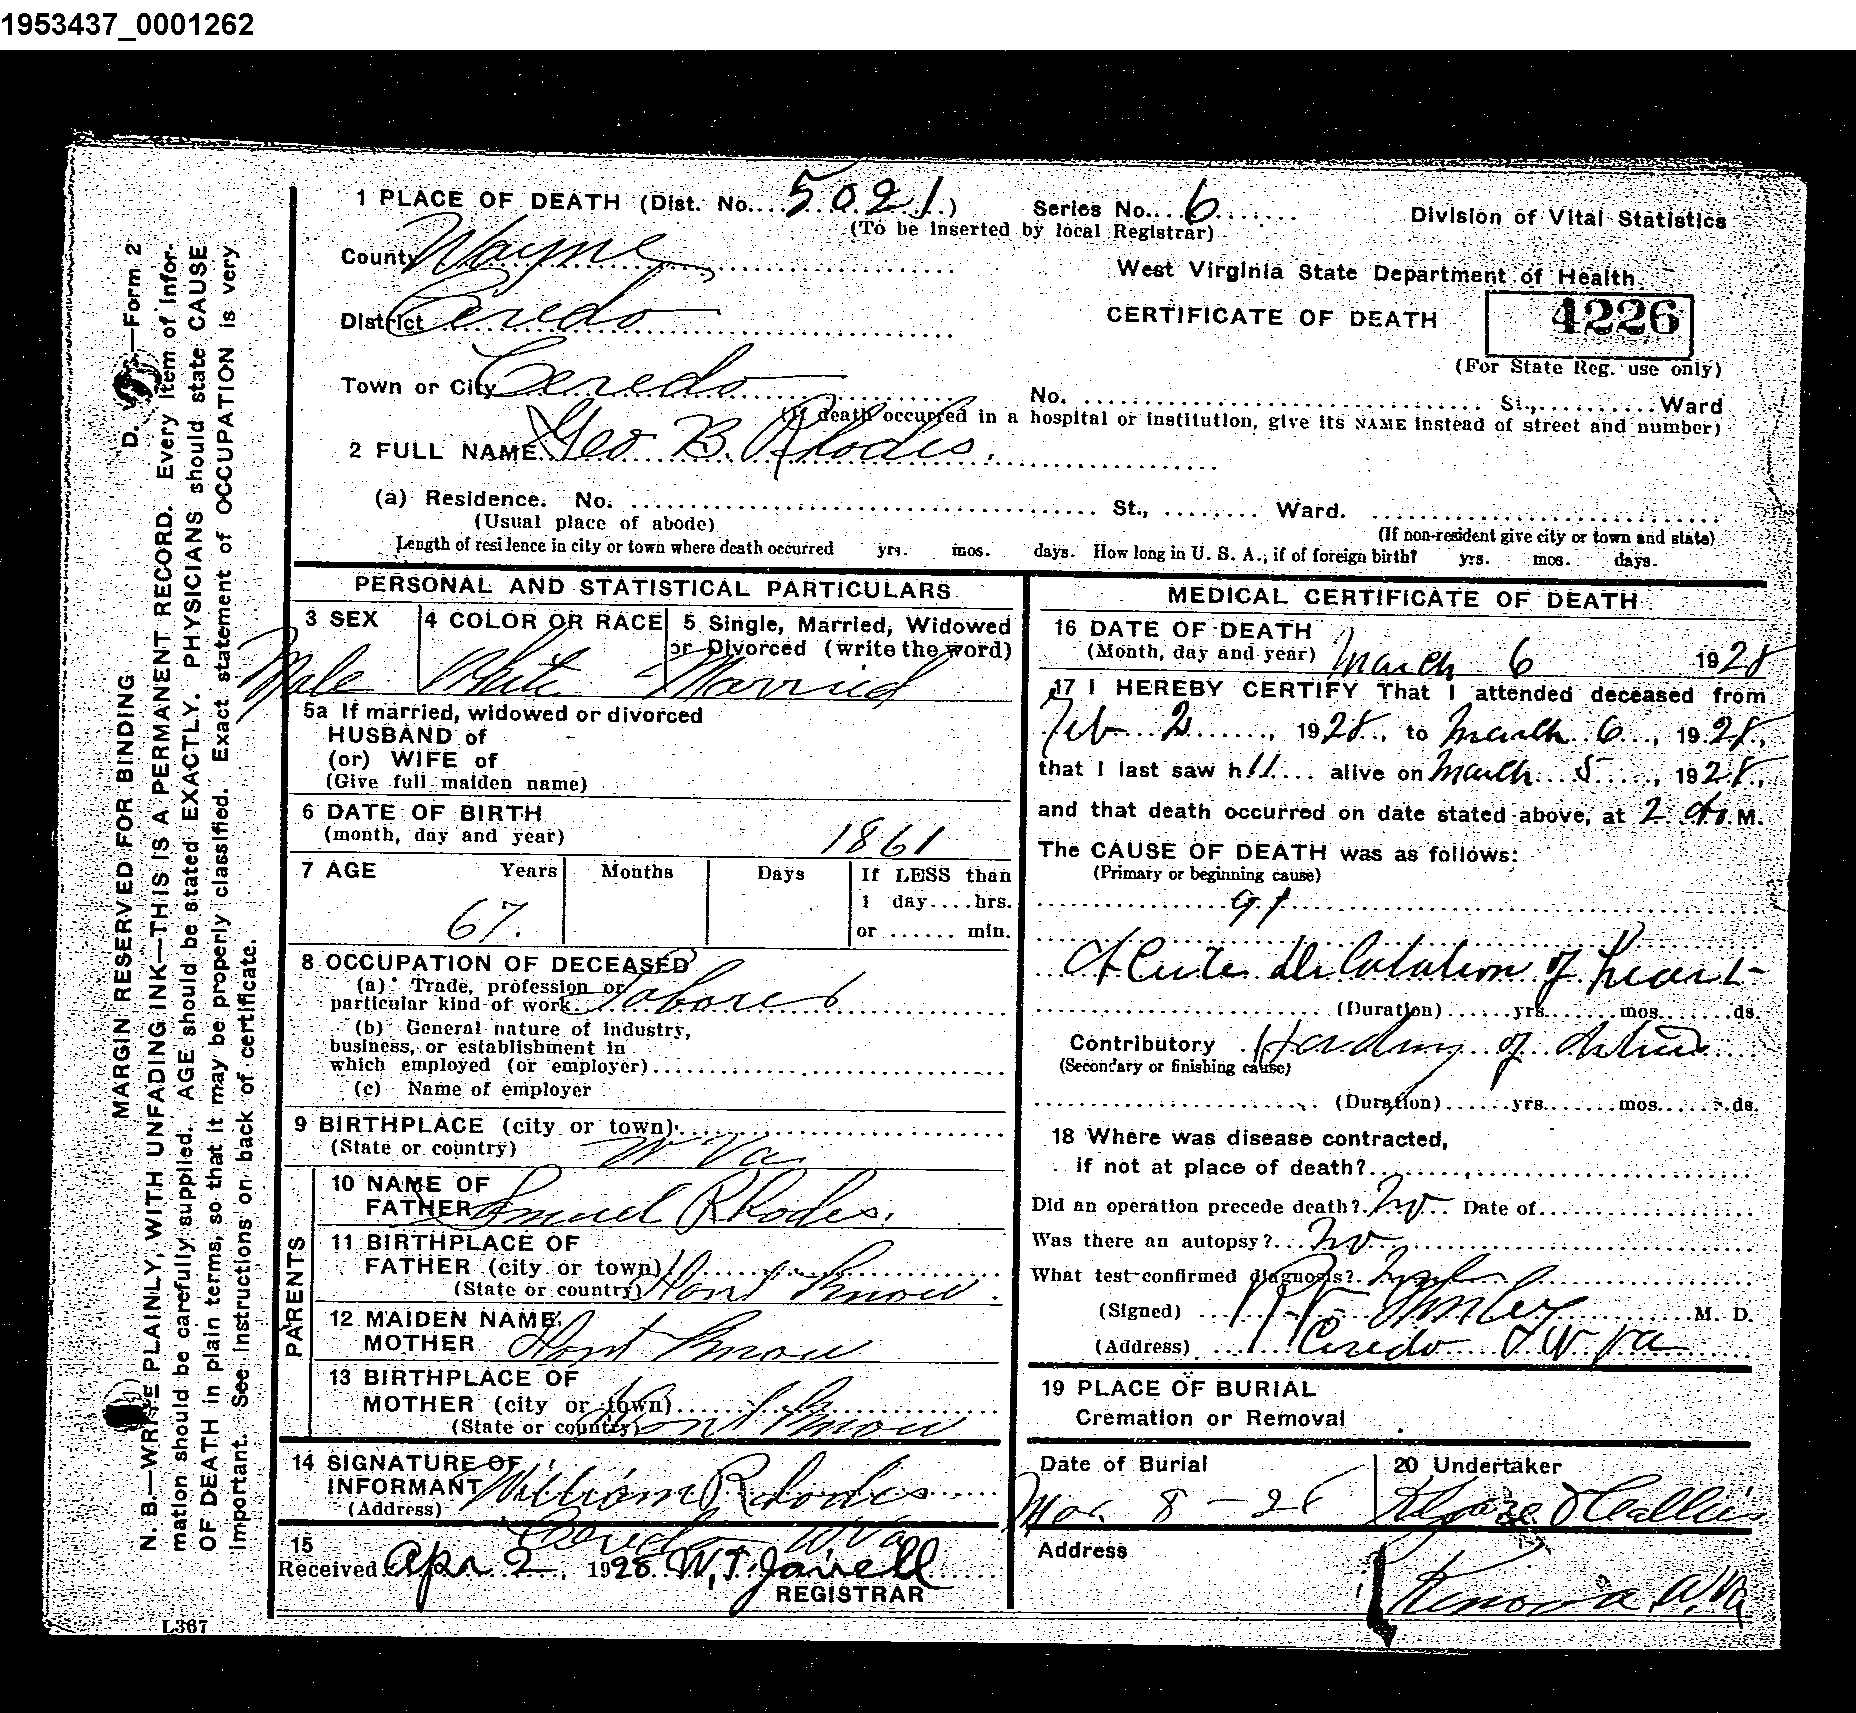 1953437_0001262
1 PLACE OF DEATH (Dist. No. 5021) Series No. 6 Division of Vital Statistics
(To be inserted by local Registrar)
County Wayne West Virginia State Department of Health
District Ceredo CERTIFICATE OF DEATH 4226
(For State Reg. use only)
Town or City Ceredo No. St., Ward
(If death occurred in a hospital or institution, give its NAME instead of street and number)
2 FULL NAME Geo B. Rhodes.
(a) Residence. No. St., Ward.
(Usual place of abode) (If non-resident give city or town and state)
Length of residence in city or town where death occurred yrs. mos. days. How long in U. S. A., if of foreign birth? yrs. mos. days.
PERSONAL AND STATISTICAL PARTICULARS
3 SEX 4 COLOR OR RACE 5 Single, Married, Widowed
or Divorced (write the word)
Male White Married
5a If married, widowed or divorced
HUSBAND of
(or) WIFE of
(Give full maiden name)
6 DATE OF BIRTH
(month, day and year) 1861
7 AGE Years Months Days If LESS than
1 day....hrs.
67. or ...... min.
8 OCCUPATION OF DECEASED
(a) Trade, profession or
particular kind of work Laborer
(b) General nature of industry,
business, or establishment in
which employed (or employer)
(c) Name of employer
9 BIRTHPLACE (city or town)
(State or country) W Va
PARENTS
10 NAME OF
FATHER Samuel Rhodes.
11 BIRTHPLACE OF
FATHER (city or town)
(State or country) Dont Know.
12 MAIDEN NAME
MOTHER Dont Know
13 BIRTHPLACE OF
MOTHER (city or town)
(State or country) Dont Know
14 SIGNATURE OF
INFORMANT William Rhodes
(Address) Ceredo W.Va
15
Received Apr 2, 1928 W.T. Jarrell
REGISTRAR
L367
MEDICAL CERTIFICATE OF DEATH
16 DATE OF DEATH
(Month, day and year) March 6 1928
17 I HEREBY CERTIFY That I attended deceased from
Feb 2, 1928, to March 6, 1928,
that I last saw h alive on March 5, 1928,
and that death occurred on date stated above, at 2 A. M.
The CAUSE OF DEATH was as follows:
(Primary or beginning cause)
91
Acute Dilatation of Heart
(Duration) yrs. mos. ds.
Contributory of
(Secondary or finishing cause)
(Duration) yrs. mos. ds.
18 Where was disease contracted,
if not at place of death?
Did an operation precede death? No Date of
Was there an autopsy? No
What test confirmed diagnosis?
(Signed) M. D.
(Address) Ceredo W Va
19 PLACE OF BURIAL
Cremation or Removal
Date of Burial 20 Undertaker
Mar. 8 - 28
Address
Kenova W.Va
D. —Form 2
MARGIN RESERVED FOR BINDING
N. B.—WRITE PLAINLY, WITH UNFADING INK—THIS IS A PERMANENT RECORD. Every item of infor-
mation should be carefully supplied. AGE should be stated EXACTLY. PHYSICIANS should state CAUSE
OF DEATH in plain terms, so that it may be properly classified. Exact statement of OCCUPATION is very
important. See instructions on back of certificate.